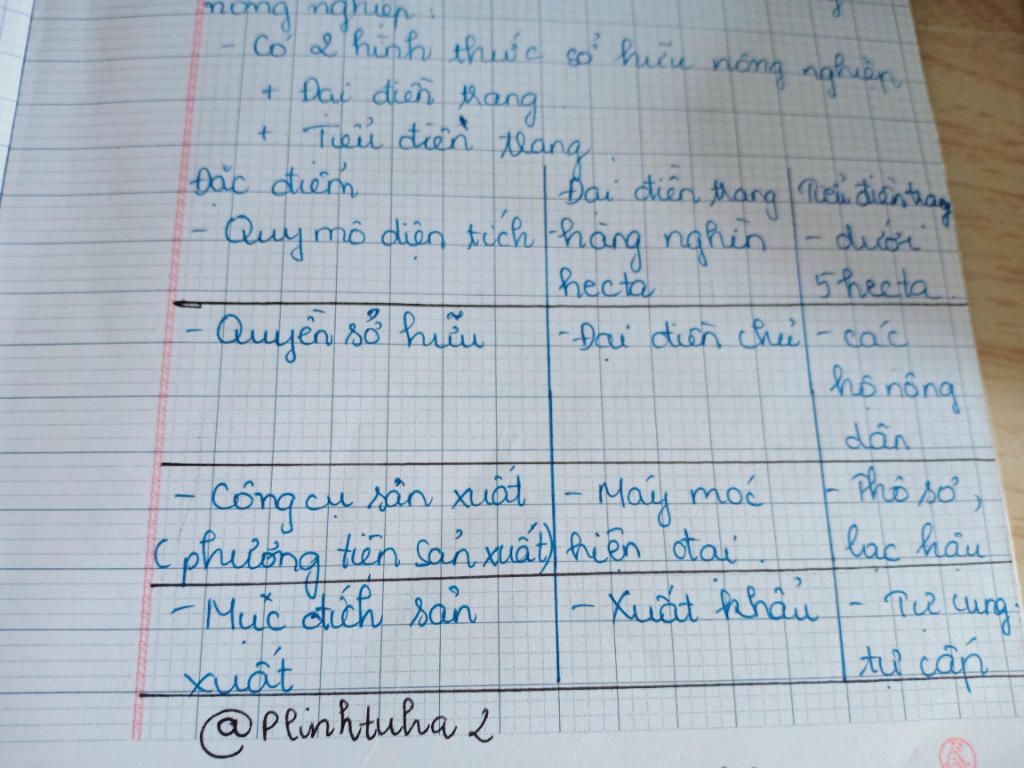 nông nghiệp:
- Có 2 hình thức sở hữu nông nghiệp
+ Đại điền trang
+ Tiểu điền trang
Đặc điểm
Đại điền trang
Tiểu điền trang
- Quy mô diện tích
- hàng nghìn
hecta
- dưới
5 hecta
- Quyền sở hữu
- Đại điền chủ
- các
hộ nông
dân
- Công cụ sản xuất
(phương tiện sản xuất)
- Máy moć
hiện đại.
- Thô sơ,
lạc hậu
- Mục đích sản
xuất
- Xuất khẩu
- Tự cung
tự cấp
@Plinhtuha2